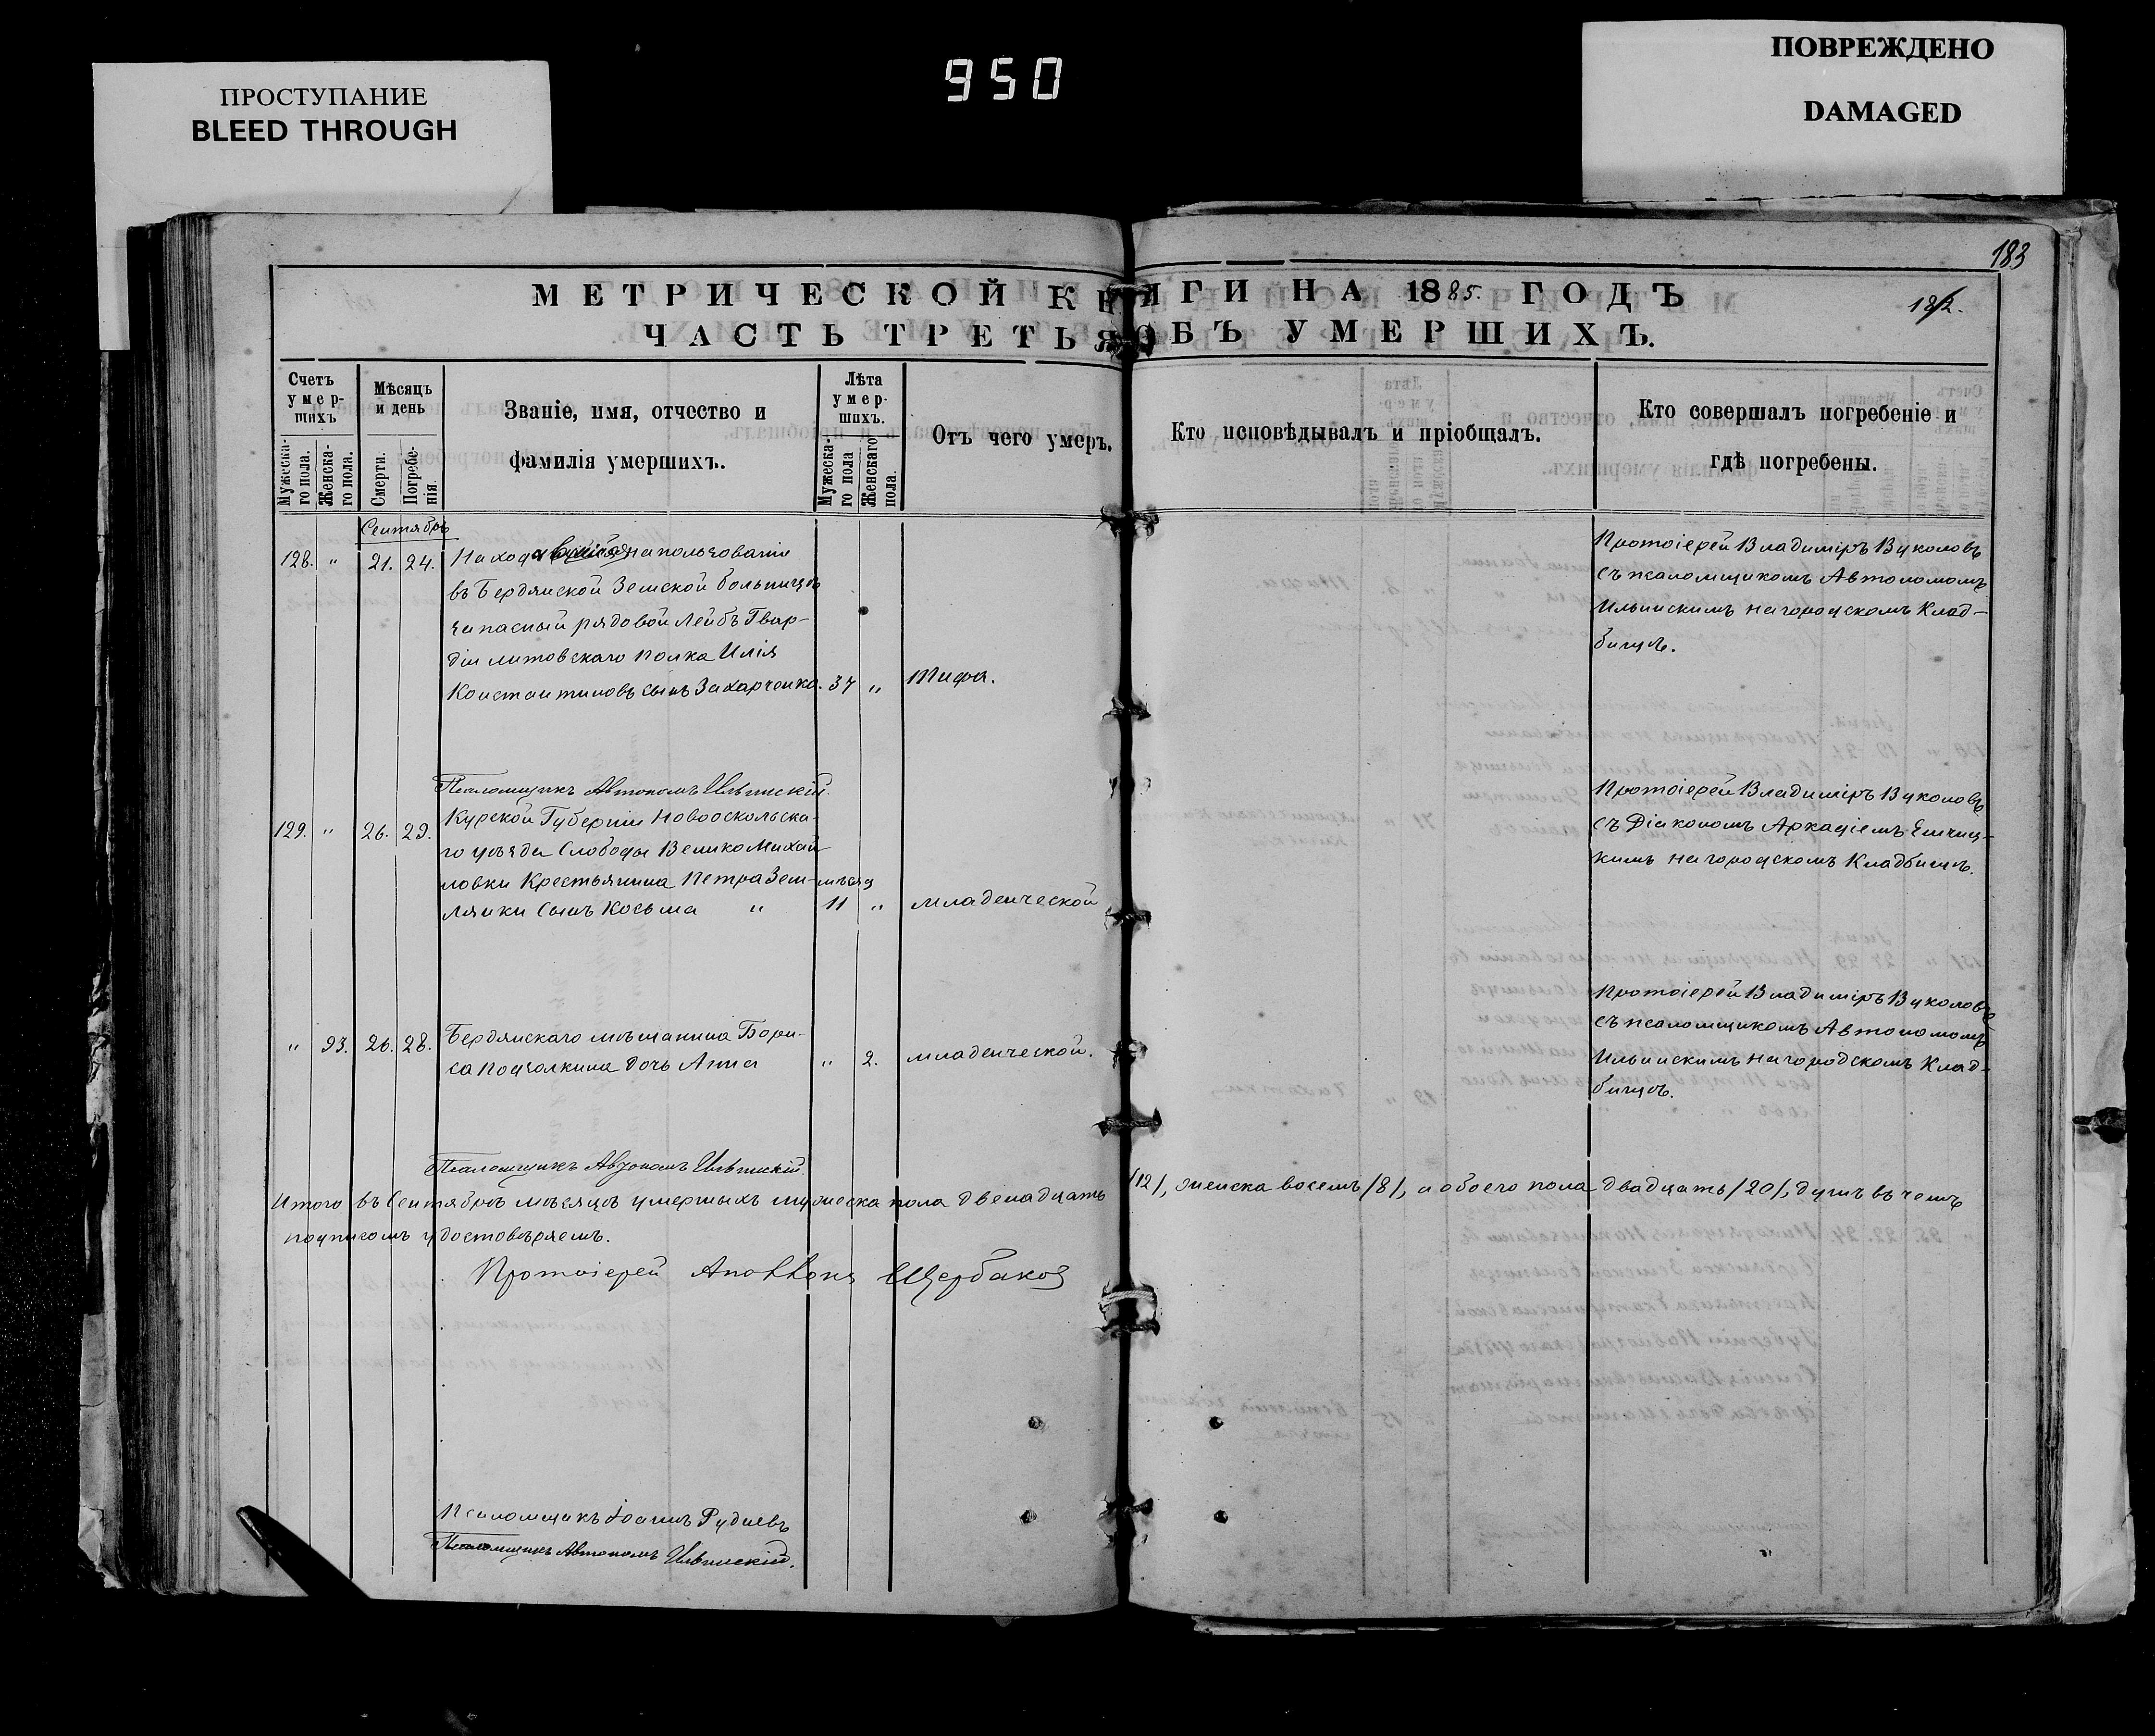 ПРОСТУПАНИЕ
BLEED THROUGH
950
ПОВРЕЖДЕНО
DAMAGED
183
МЕТРИЧЕСКОЙ КНИГИ НА 1885. ГОДЪ
182.
ЧАСТЬ ТРЕТЬЯ ОБЪ УМЕРШИХЪ.
Счетъ умер-шихъ
Мужеска-го пола.
Женска-го пола.
Мѣсяцъ и день
Смерти.
Погребе-нія.
Званіе, имя, отчество и
фамилія умершихъ.
Лѣта умер-шихъ.
Мужеска-го пола
Женскаго пола.
Отъ чего умеръ.
Кто исповѣдывалъ и пріобщалъ.
Кто совершалъ погребеніе и
гдѣ погребены.
Сентябрь
128. " 21. 24. Находившійся на пользованіи
въ Бердянской Земской больницѣ
запасный рядовой Лейбъ Гвар-
діи литовскаго полка Илія
Константиновъ сынъ Захарченко. 37 " Тифа.
Протоіерей Владиміръ Вуколовъ
съ псаломщикомъ Автономомъ
Ильинскимъ на городскомъ Клад-
бищѣ.
Псаломщикъ Автономъ Ильинскій.
129. " 26. 29. Курской Губерніи Новооскольска-
го уѣзда Слободы Велико Михай-
ловки Крестьянина Петра Зем- мѣсяц
лянки сынъ Косьма " 11 " младенческой
Протоіерей Владиміръ Вуколовъ
съ Діакономъ Аркадіемъ
кимъ на городскомъ Кладбищѣ.
" 93. 26. 28. Бердянскаго мѣщанина Бори-
са Подчолкина дочь Анна " 2. младенческой.
Протоіерей Владиміръ Вуколовъ
съ псаломщикомъ Автономомъ
Ильинскимъ на городскомъ Клад-
бищѣ.
Псаломщикъ Автономъ Ильинскій.
Итого въ Сентябрѣ мѣсяцѣ умершихъ мужеска пола двенадцать /12/, женска восемь /8/, а обоего пола двадцать /20/, душъ въ чемъ
подписомъ удостовѣряемъ.
Протоіерей Аполлонъ Щербаковъ
Псаломщикъ Іоаннъ Рудневъ
Псаломщикъ Автономъ Ильинскій.